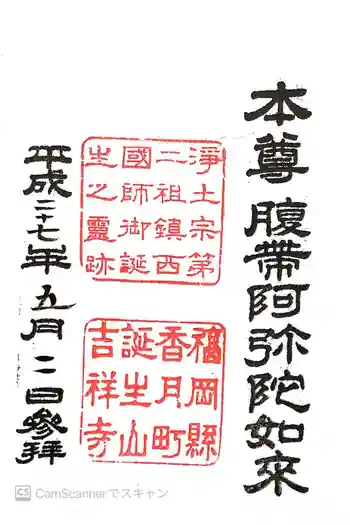 本尊腹帯阿弥陀如來
淨土宗第
二祖鎮西
國師御誕
生之靈跡
福岡縣
香月町
誕生山
吉祥寺
平成二十七年五月二日参拝
CS CamScannerでスキャン